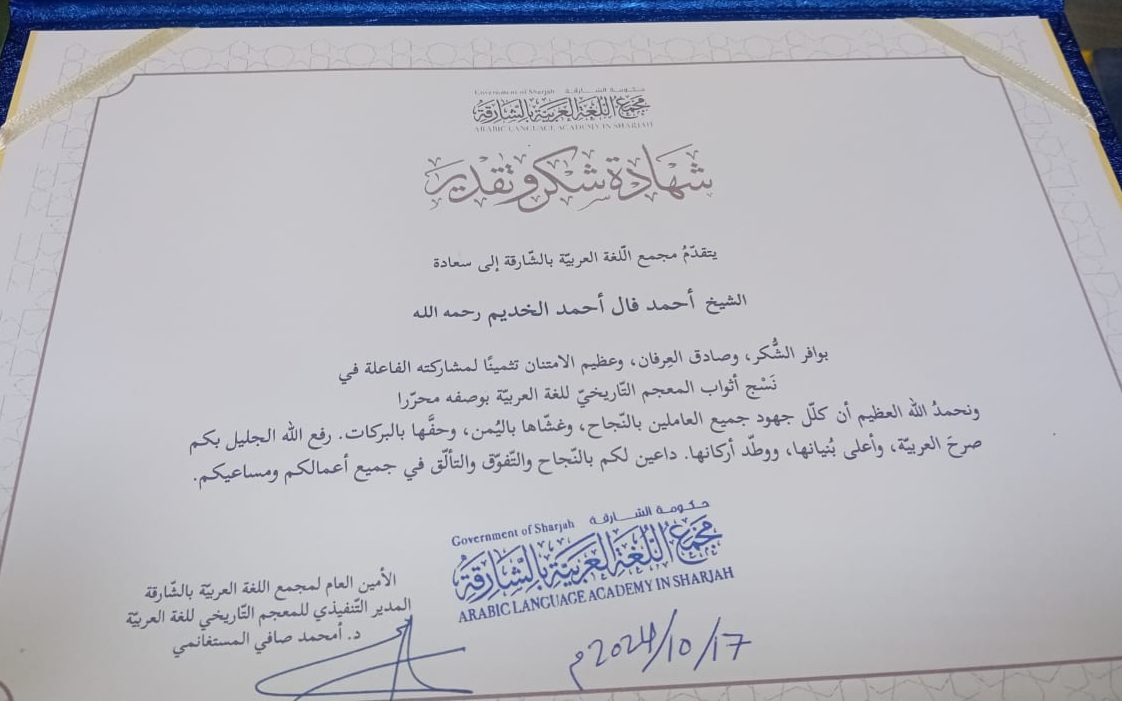 Government of Sharjah حكومة الشارقة
مجمع اللغة العربية بالشارقة
ARABIC LANGUAGE ACADEMY IN SHARJAH
شهادة شكر وتقدير
يتقدّمُ مجمع اللّغة العربيّة بالشّارقة إلى سعادة
الشيخ أحمد فال أحمد الخديم رحمه الله
بوافر الشُّكر، وصادق العِرفان، وعظيم الامتنان تثمينًا لمشاركته الفاعلة في
نَسْج أثواب المعجم التّاريخيّ للغة العربيّة بوصفه محرّرا
ونحمدُ الله العظيم أن كلّل جهود جميع العاملين بالنّجاح، وغشّاها باليُمن، وحفَّها بالبركات. رفع الله الجليل بكم
صرحَ العربيّة، وأعلى بُنيانها، ووطّد أركانها. داعين لكم بالنّجاح والتّفوّق والتألّق في جميع أعمالكم ومساعيكم.
Government of Sharjah حكومة الشارقة
مجمع اللغة العربية بالشارقة
ARABIC LANGUAGE ACADEMY IN SHARJAH
2024/10/17م
الأمين العام لمجمع اللغة العربيّة بالشّارقة
المدير التّنفيذي للمعجم التّاريخي للغة العربيّة
د. أمحمد صافي المستغانمي